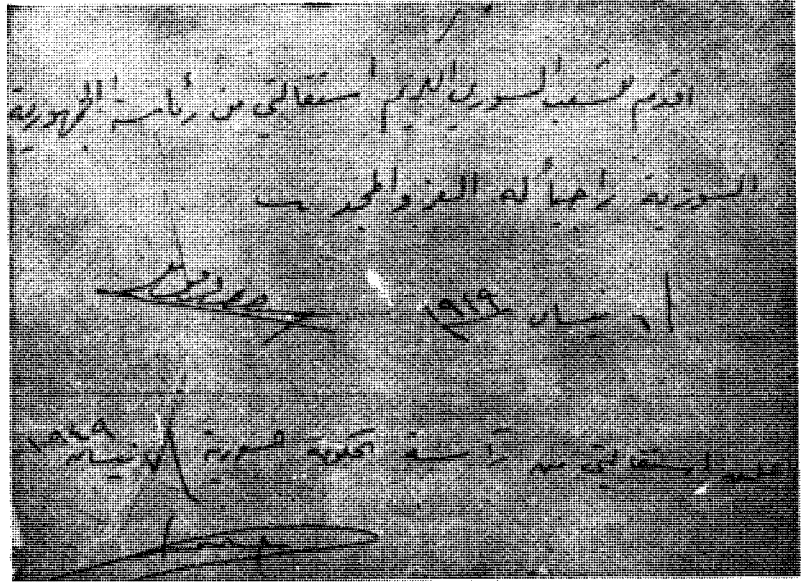 اقدم للشعب السوري الكريم استقالتي من رئاسة الجمهورية
السورية راجياً له العز والمجد
٦ نيسان ١٩٤٩
استقالتي من رئاسة الحكومة السورية نيسان ١٩٤٩